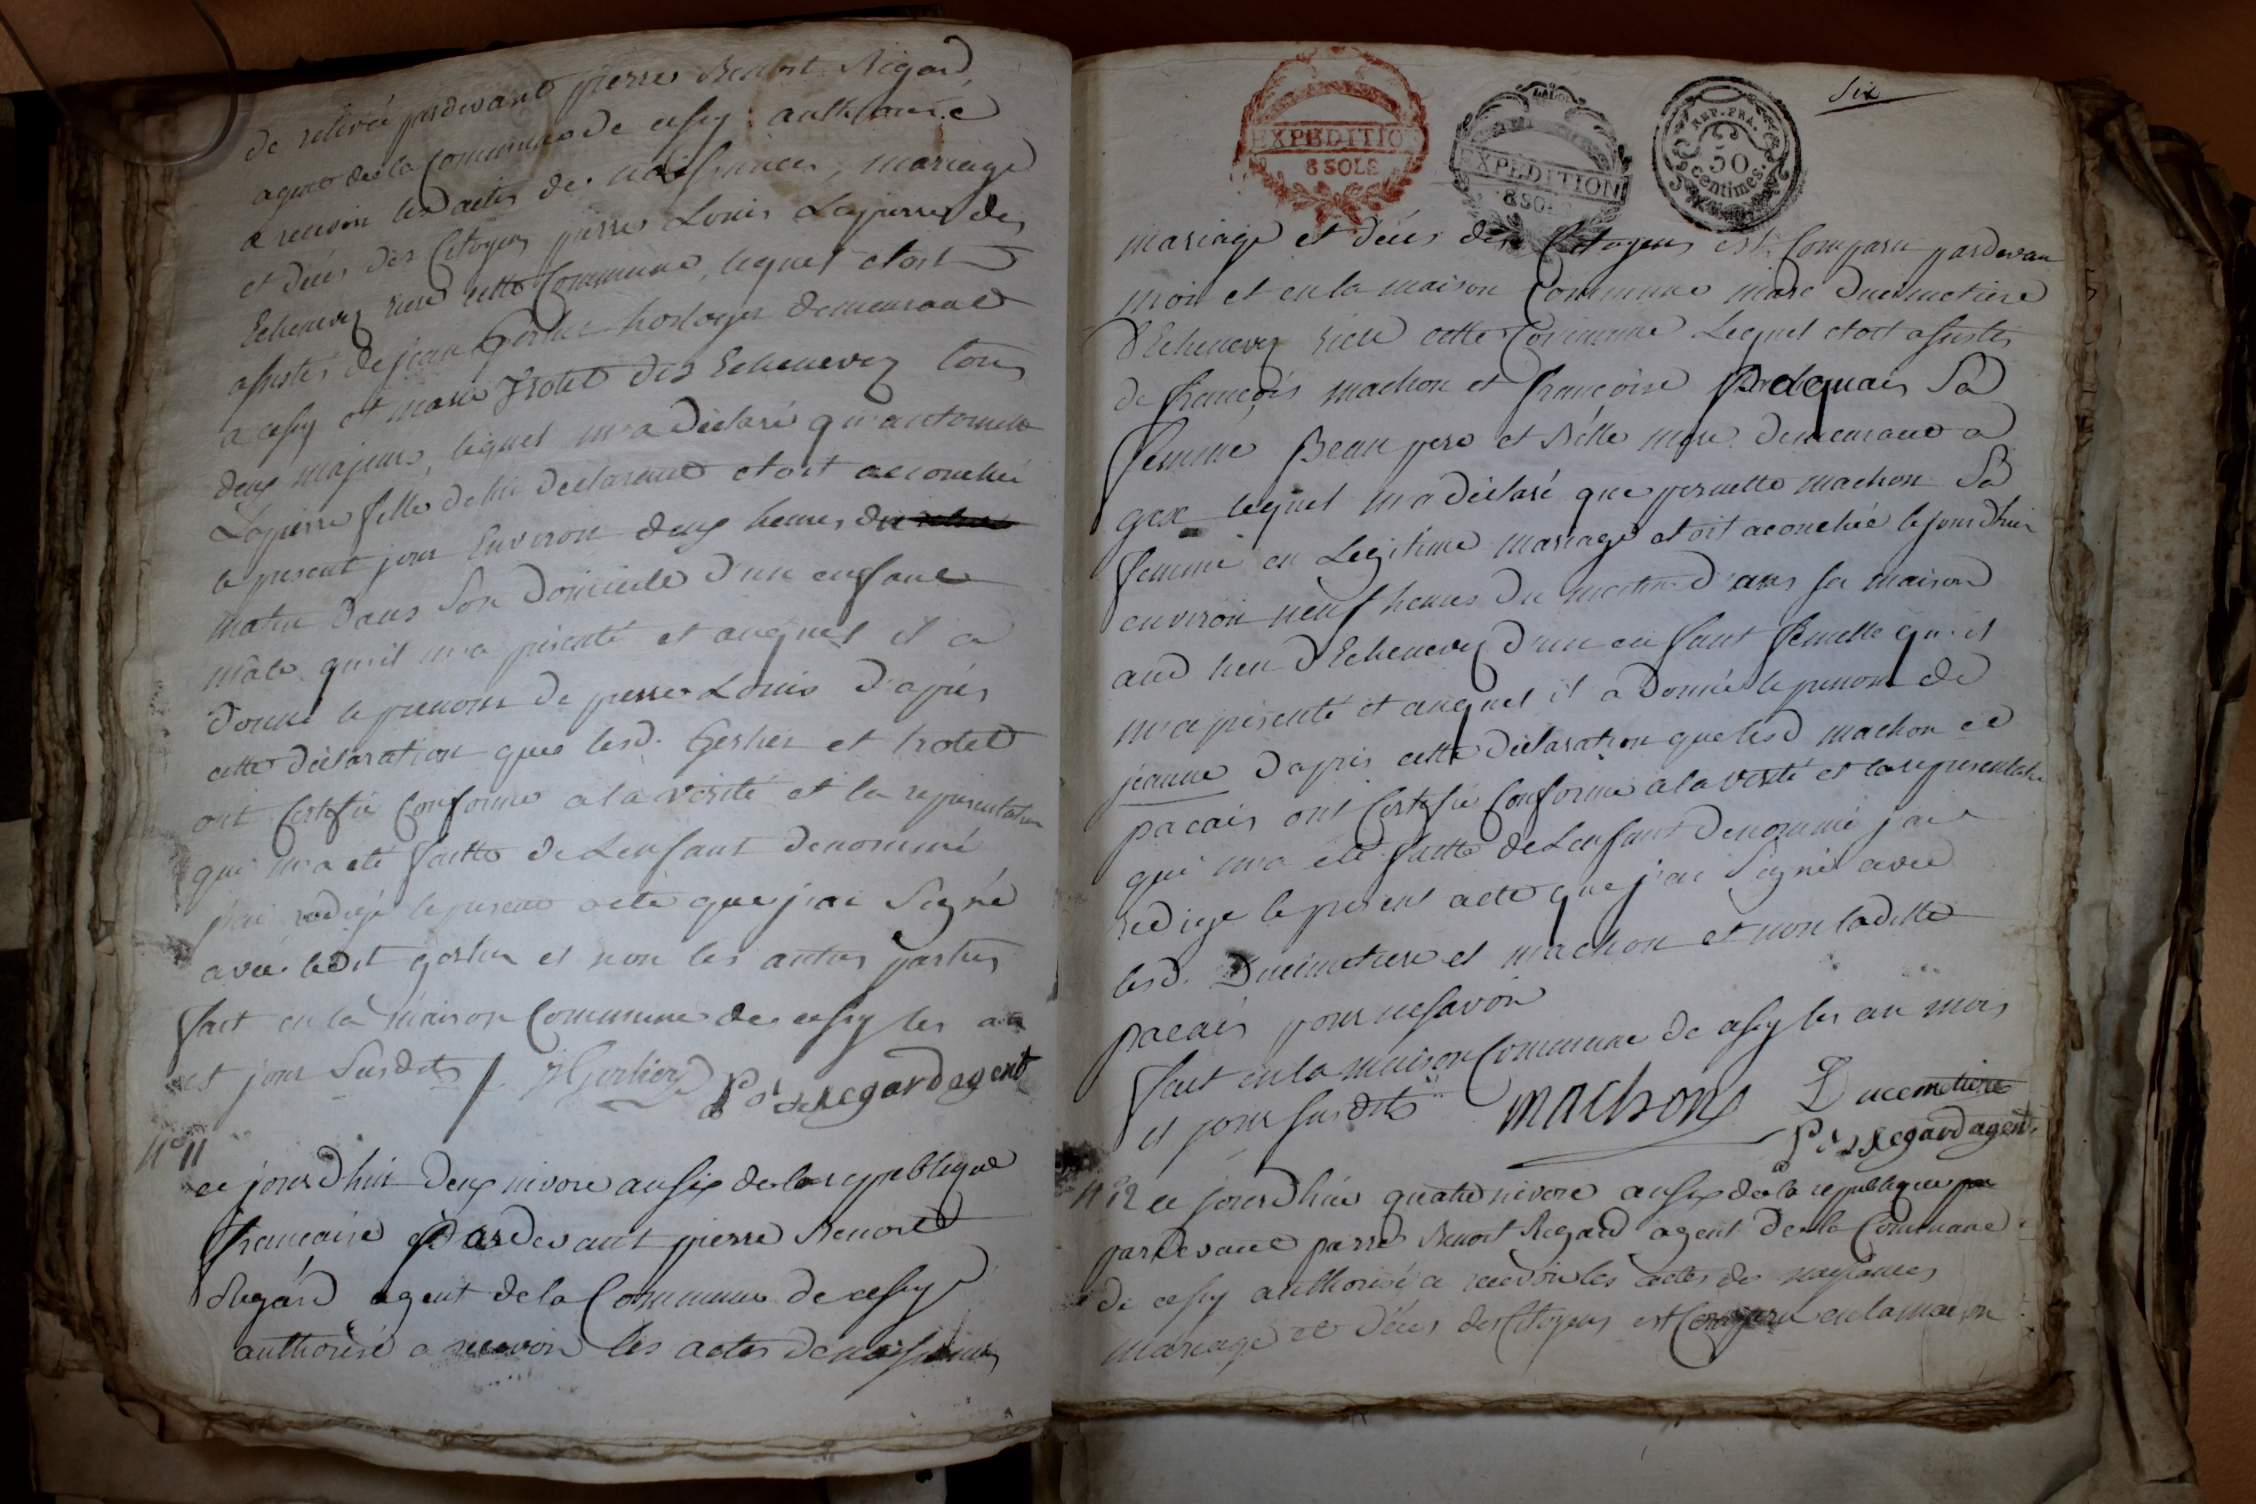 de relivée pardevant pierre Benoit Régard
agent de la Commune de cessy authorisé
a recevoir les actes de naissances, mariage
et décés des Citoyens pierre Louis Lapierre des
Echenevex riere cette Commune, lequel etoit
assisté de jean horloger demeurant
a cessy et marie trotet des Echenevex tous
deux majeurs, lequel m'a déclaré qu'antoinette
Lapierre fille de lui declarant etoit accouchée
le present jour Environ deux heures du
matin dans Son Domicile d'un enfant
mâle qu'il m'a présenté et auquel il a
donné le prenom de pierre Louis d'après
cette déclaration que lesd. Gerlier et trotet
ont Certifié Conforme a la vérité et la représentation
qui m'a été faitte de Lenfant denommé
j'ai redigé le present acte que j'ai Signé
avec ledit gerlier et non les autres parties
fait en la maison Commune de cessy les an
et jour Susdits JGerlier
P. Bt Regard agent
N° 11
ce jourd'hui deux nivose an six de la republique
francaise pardevant pierre Benoit
Regard agent de la Commune de cessy
authorisé a recevoir les actes de naissances
Six
EXPEDITION
8 SOLS
EXPEDITION
8 SOLS
REP. FRA.
50
centimes.
mariage et décés des Citoyens est Comparu pardevan
moi et en la maison Commune marc Ducimetiere
d'Echenevex riere cette Commune Lequel etoit assisté
de françois machon et françoise Sa
femme Beau pere et Belle mere demeurant a
gex lequel m'a déclaré que pernette machon Sa
femme en Legitime mariage etoit acouchée le jourd'hui
environ neuf heures du matin dans sa maison
aud lieu d'Echenevex d'un enfant femelle qu'il
m'a présenté et auquel il a donné le prenom de
jeanne d'après cette déclaration que lesd machon et
pacais ont Certifié Conforme a la vérité et la représentation
qui m'a été faitte de Lenfant denommé j'ai
redigé le present acte que j'ai Signé avec
lesd. Ducimetiere et machon et non laditte
pacais pour ne savoir
fait en la maison Commune de cessy les an mois
et jour susdits machon Ducemetiere
P. Bt Regard agent
N° 12 ce jourdhui quatre nivose an six de la republique
pardevant pierre Benoit Regard agent de la Commune
de cessy authorisé a recevoir les actes de naissances
mariage et décés des Citoyens est Comparu en la maison